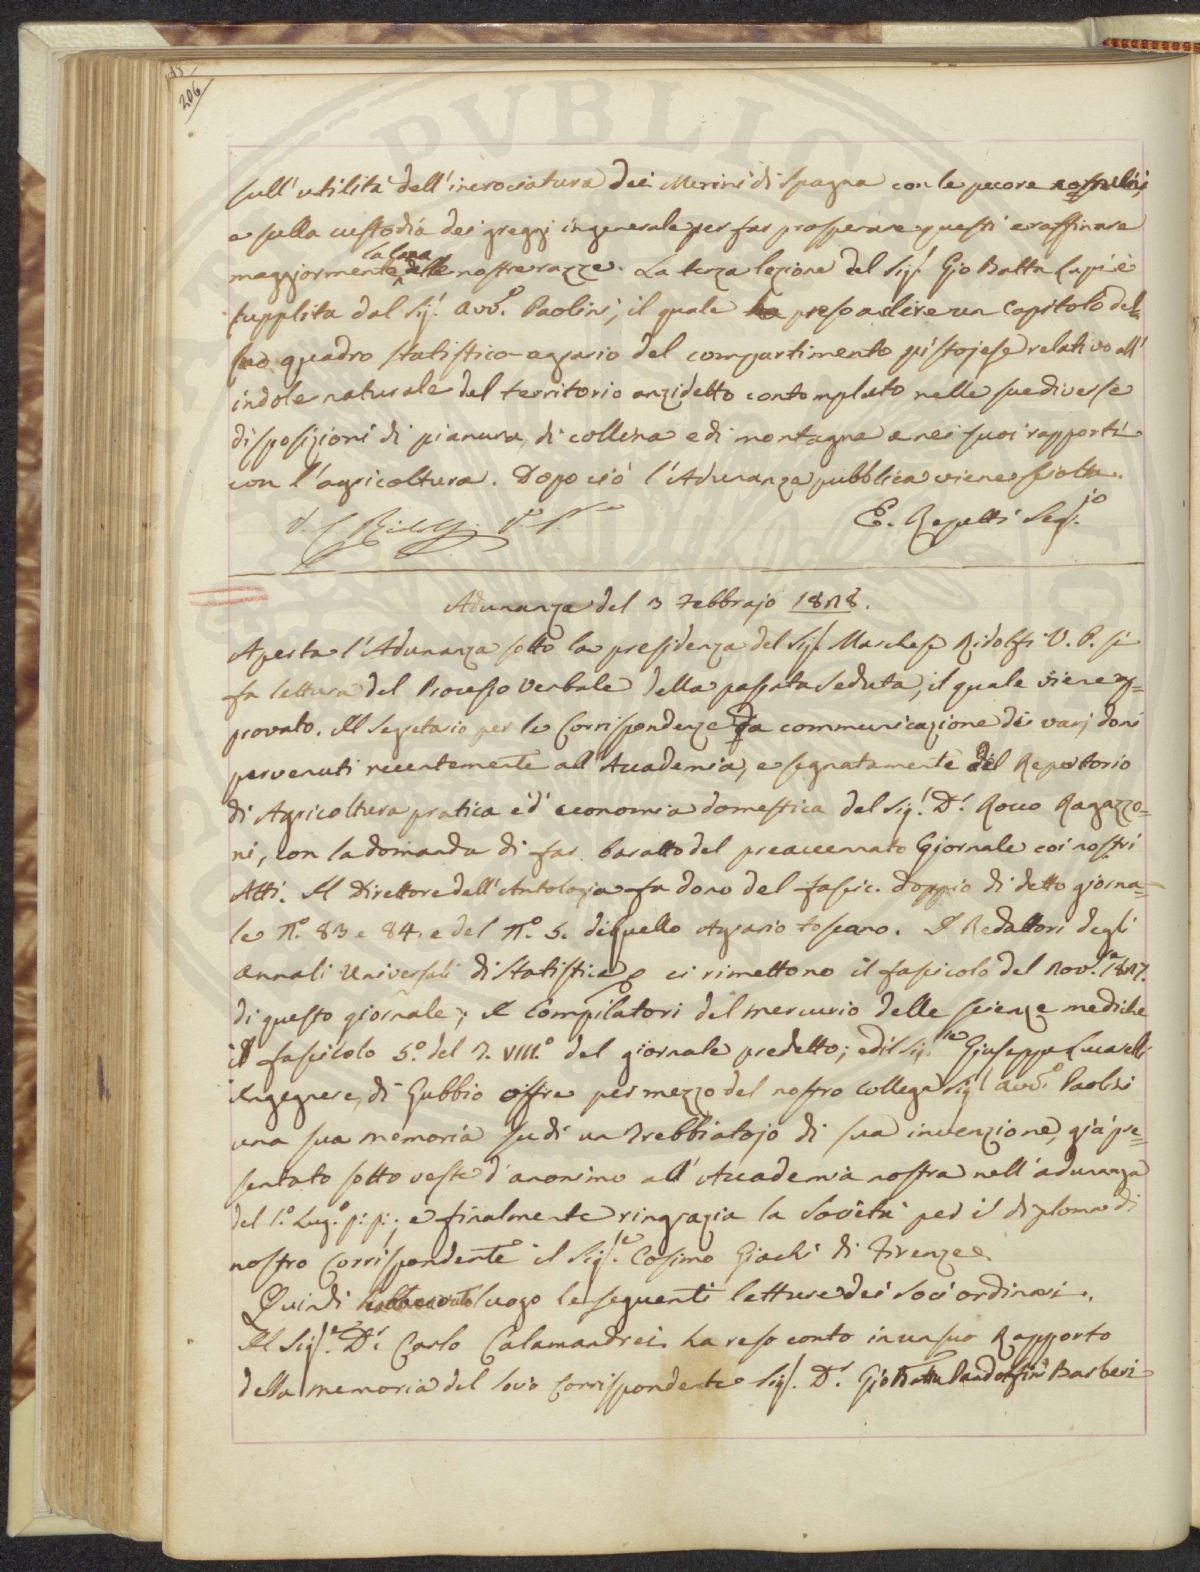 206
sull'utilità dell'incrociatura dei Merini di Spagna con le pecore nostrali,
e sulla custodia dei greggi in generale per far prosperare questi e raffinare
maggiormente la lana delle nostre razze. La terza lezione del Sig.r Gio Batta Lapi è
supplita dal Sig.r Avv.o Paolini, il quale ha preso a dire un Capitolo del
suo quadro statistico-agrario del compartimento pistojese relativo all'
indole naturale del territorio anzidetto contemplato nelle sue diverse
disposizioni di pianura, di collina e di montagna e nei suoi rapporti
con l'agricoltura. Dopo ciò l'Adunanza pubblica viene sciolta.
C. Ridolfi V. P. E. Repetti Seg.rio
Adunanza del 3 Febbrajo 1828.
Aperta l'Adunanza sotto la presidenza del Sig.r Marchese Ridolfi V. P. si
fa lettura del Processo Verbale della passata seduta, il quale viene ap=
provato. Il Segretario per le Corrispondenze fa communicazione dei varj doni
pervenuti recentemente all'Accademia, e segnatamente del Repertorio
di Agricoltura pratica e d'economia domestica del Sig.r D.r Rocco Ragazzo=
ni, con la domanda di far baratto del preaccennato Giornale coi nostri
Atti. Il Direttore dell'Antologia fa dono del fascic. doppio di detto giorna=
le N.o 83 e 84, e del N.o 5. di quello Agrario toscano. I Redattori degli
Annali Universali di Statistica ci rimettono il fascicolo del Nov.re 1827.
di questo giornale; I Compilatori del mercurio delle scienze mediche
il fascicolo 5.o del T. VIII.o del giornale predetto; ed il Sig.re Giuseppe Lucarelli
Ingegnere, di Gubbio offre per mezzo del nostro collega Sig.r Avv.o Paolini
una sua memoria su di un Trebbiatojo di sua invenzione, già pre=
sentato sotto veste d'anonimo all'Accademia nostra nell'adunanza
del 1.o Lug.o p: p:; e finalmente ringrazia la Società pel il diploma di
nostro Corrispondente il Sig.re Cosimo Giachi di Firenze.
Quindi luogo le seguenti letture dei Soci ordinari.
Il Sig.re D.r Carlo Calamandrei ha reso conto in un suo Rapporto
della memoria del Socio Corrispondente Sig.r D.r Gio Batta Pandolfini Barberi